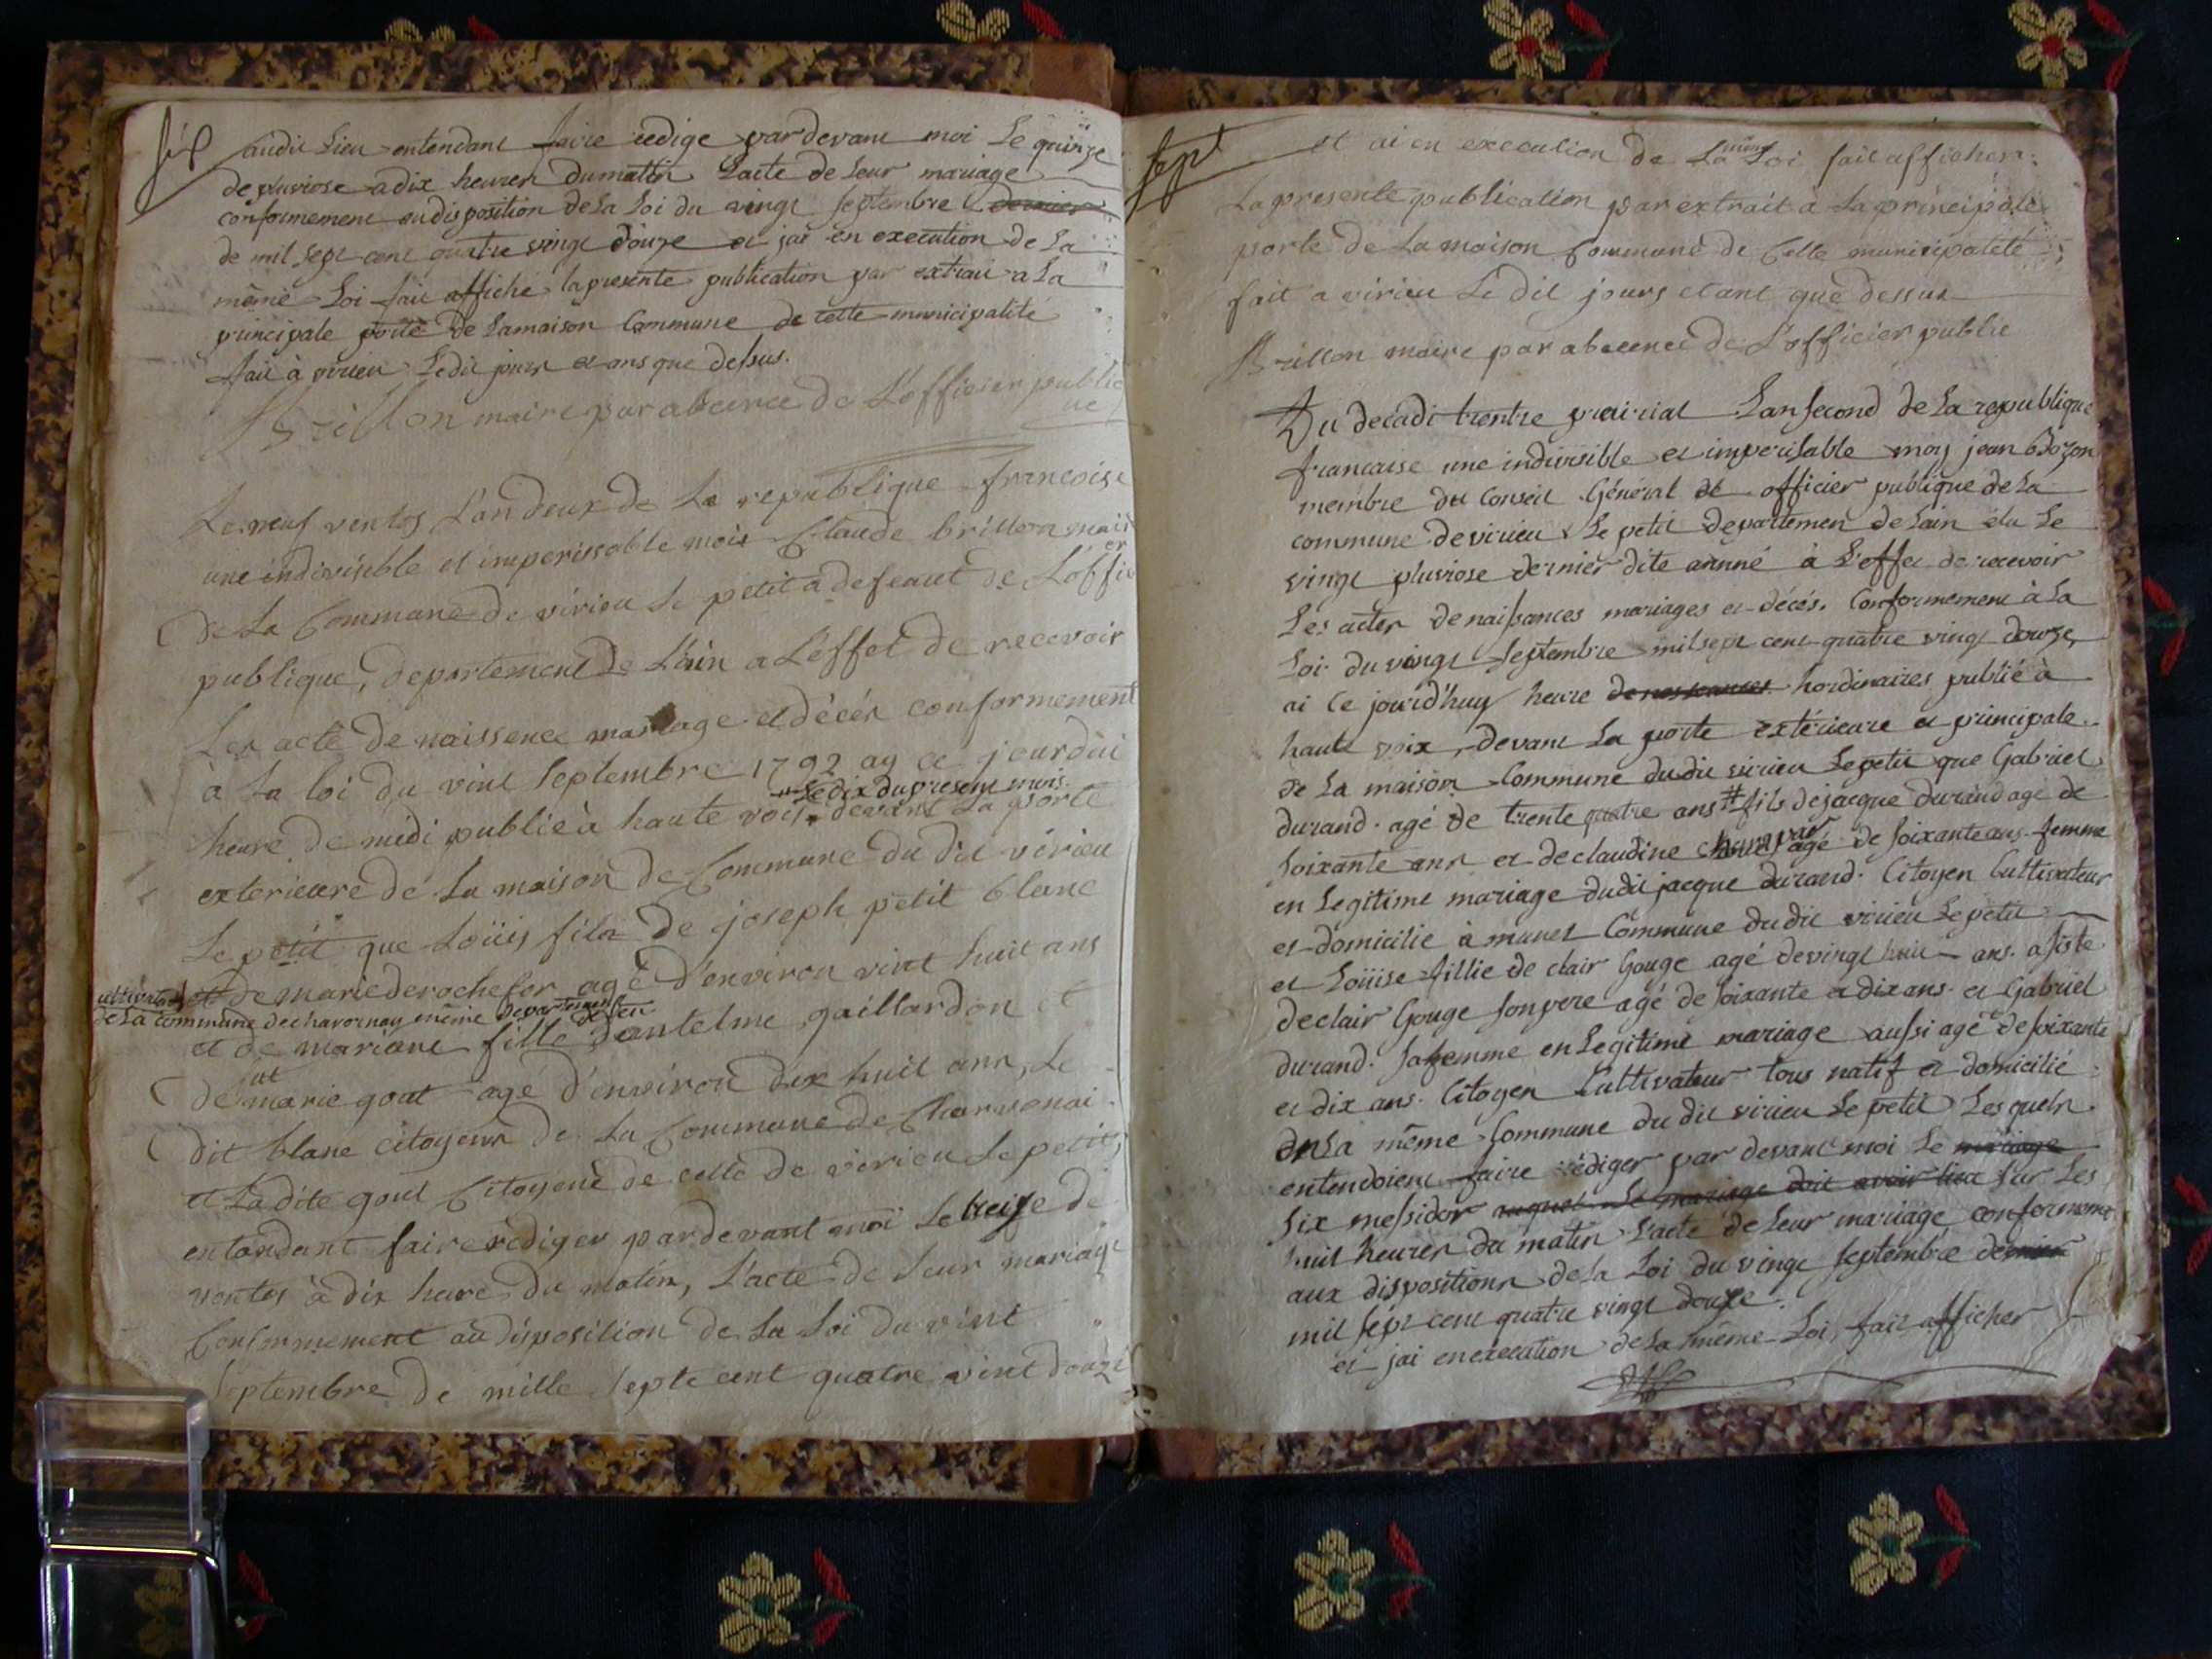 six
audit Lieu entendant faire redige pardevant moi Le quinze
de pluviose a dix heures du matin L'acte de Leur mariage
conformement au disposition de La Loi du vingt septembre dernier
de mil sept cent quatre vingt douze et jai en execution de La
même Loi fait affiché la presente publication par extrait a La
principale porte de La maison Commune de cette municipalité
fait à virieu Ledit jours et ans que dessus.
Brillon maire par abcence de L'officier public
Le neuf ventos L'an deux de La republique francoise
une indivisible et imperissable moi Claude brillon mair
de La Commune de virieu Le petit a defeaut de L'offi
er
publique, departement de L'ain a L'effet de recevoir
Les acte de naissence mariage et décés conformement
à La loi du vint septembre 1792 ay ce jourdui
Le dix du present mois
heure de midi publié à haute voi devant La porte
exterieure de La maison de Commune du dit virieu
Le petit que Loüis fils de joseph petit blanc
et de marie derochefor agé d'environ vint huit ans
de La commune de chavornay même departement
et de mariane fille dantelme gaillardon et
de marie gout agé d'environ dix huit ans, Le
dit blanc citoyens de La Commune de Charvonai
et La dite gout Citoyene de celle de virieu Le petit
entandant faire rediger pardevant moi Le treize de
ventos à dix heure du matin, L'acte de Leur mariage
Conformement au disposition de La Loi du vint
septembre de mille septe cent quatre vint douze
sept
et ai en execution de La même Loi fait afficher
La presente publication par extrait a La principale
porte de La maison Commune de Cette municipalité
fait a virieu Le dit jours et ant que dessus
Brillon maire par abcence de L'officier public
Du décadi trentre prairial L'an second de La republique
francaise une indivisible et imperisable moy jean Bozon
membre du Conseil Général et officier publique de La
commune de virieu Le petit departemen de Lain élu Le
vingt pluviose dernier dite année à L'effet de recevoir
Les actes de naissances mariages et décés. Conformement à La
Loi du vingt septembre mil sept cent quatre vingt douze,
ai Ce jourd'huy heure de nos seances hordinaires publié à
haute voix, devant La porte extérieure et principale
de La maison Commune du dit virieu Le petit que Gabriel
durand agé de trente quatre ans # fils de jacque durand agé de
soixante ans et de claudine agé de soixante ans femme
en Legitime mariage dudit jacque durand. Citoyen Cultivateur
et domicilié à munet Commune du dit virieu Le petit
et Loüise fillie de clair Gouge agé de vingt huit ans. asisté
de clair Gouge son pere agé de soixante et dix ans. et Gabriel
durand. sa femme en Legitime mariage aussi agé de soixante
et dix ans. Citoyen Cultivateur tous natif et domicilié
de La même Commune du dit virieu Le petit Les quels
entendoient faire rédiger par devant moi Le mariage
six messidor auquel Le mariage doit avoir lieu sur Les
huit heures du matin L'acte de Leur mariage conformement
aux dispositions de La Loi du vingt septembre dernier
mil sept cent quatre vingt douze.
et jai en execution de La même Loi, fait afficher